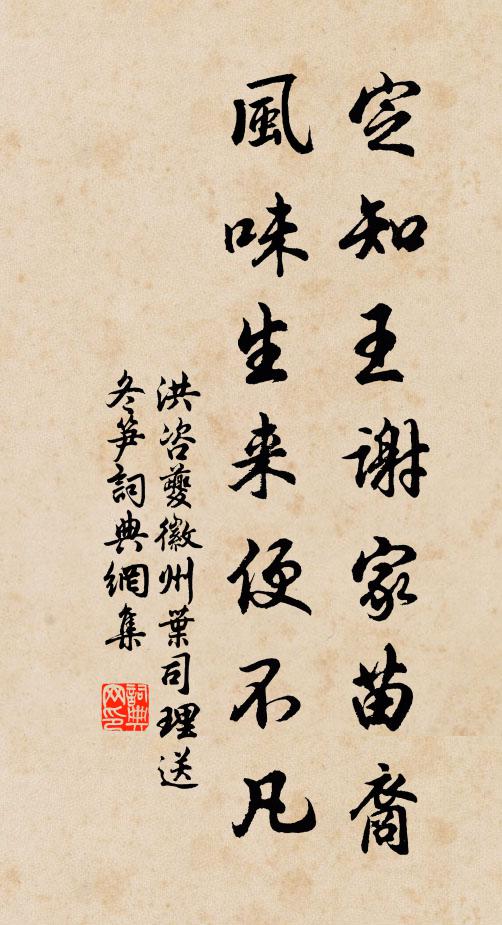 定知王謝家苗裔
風味生来便不凡
洪咨夔徽州葉司理送
冬笋詞典網集
詞典网印